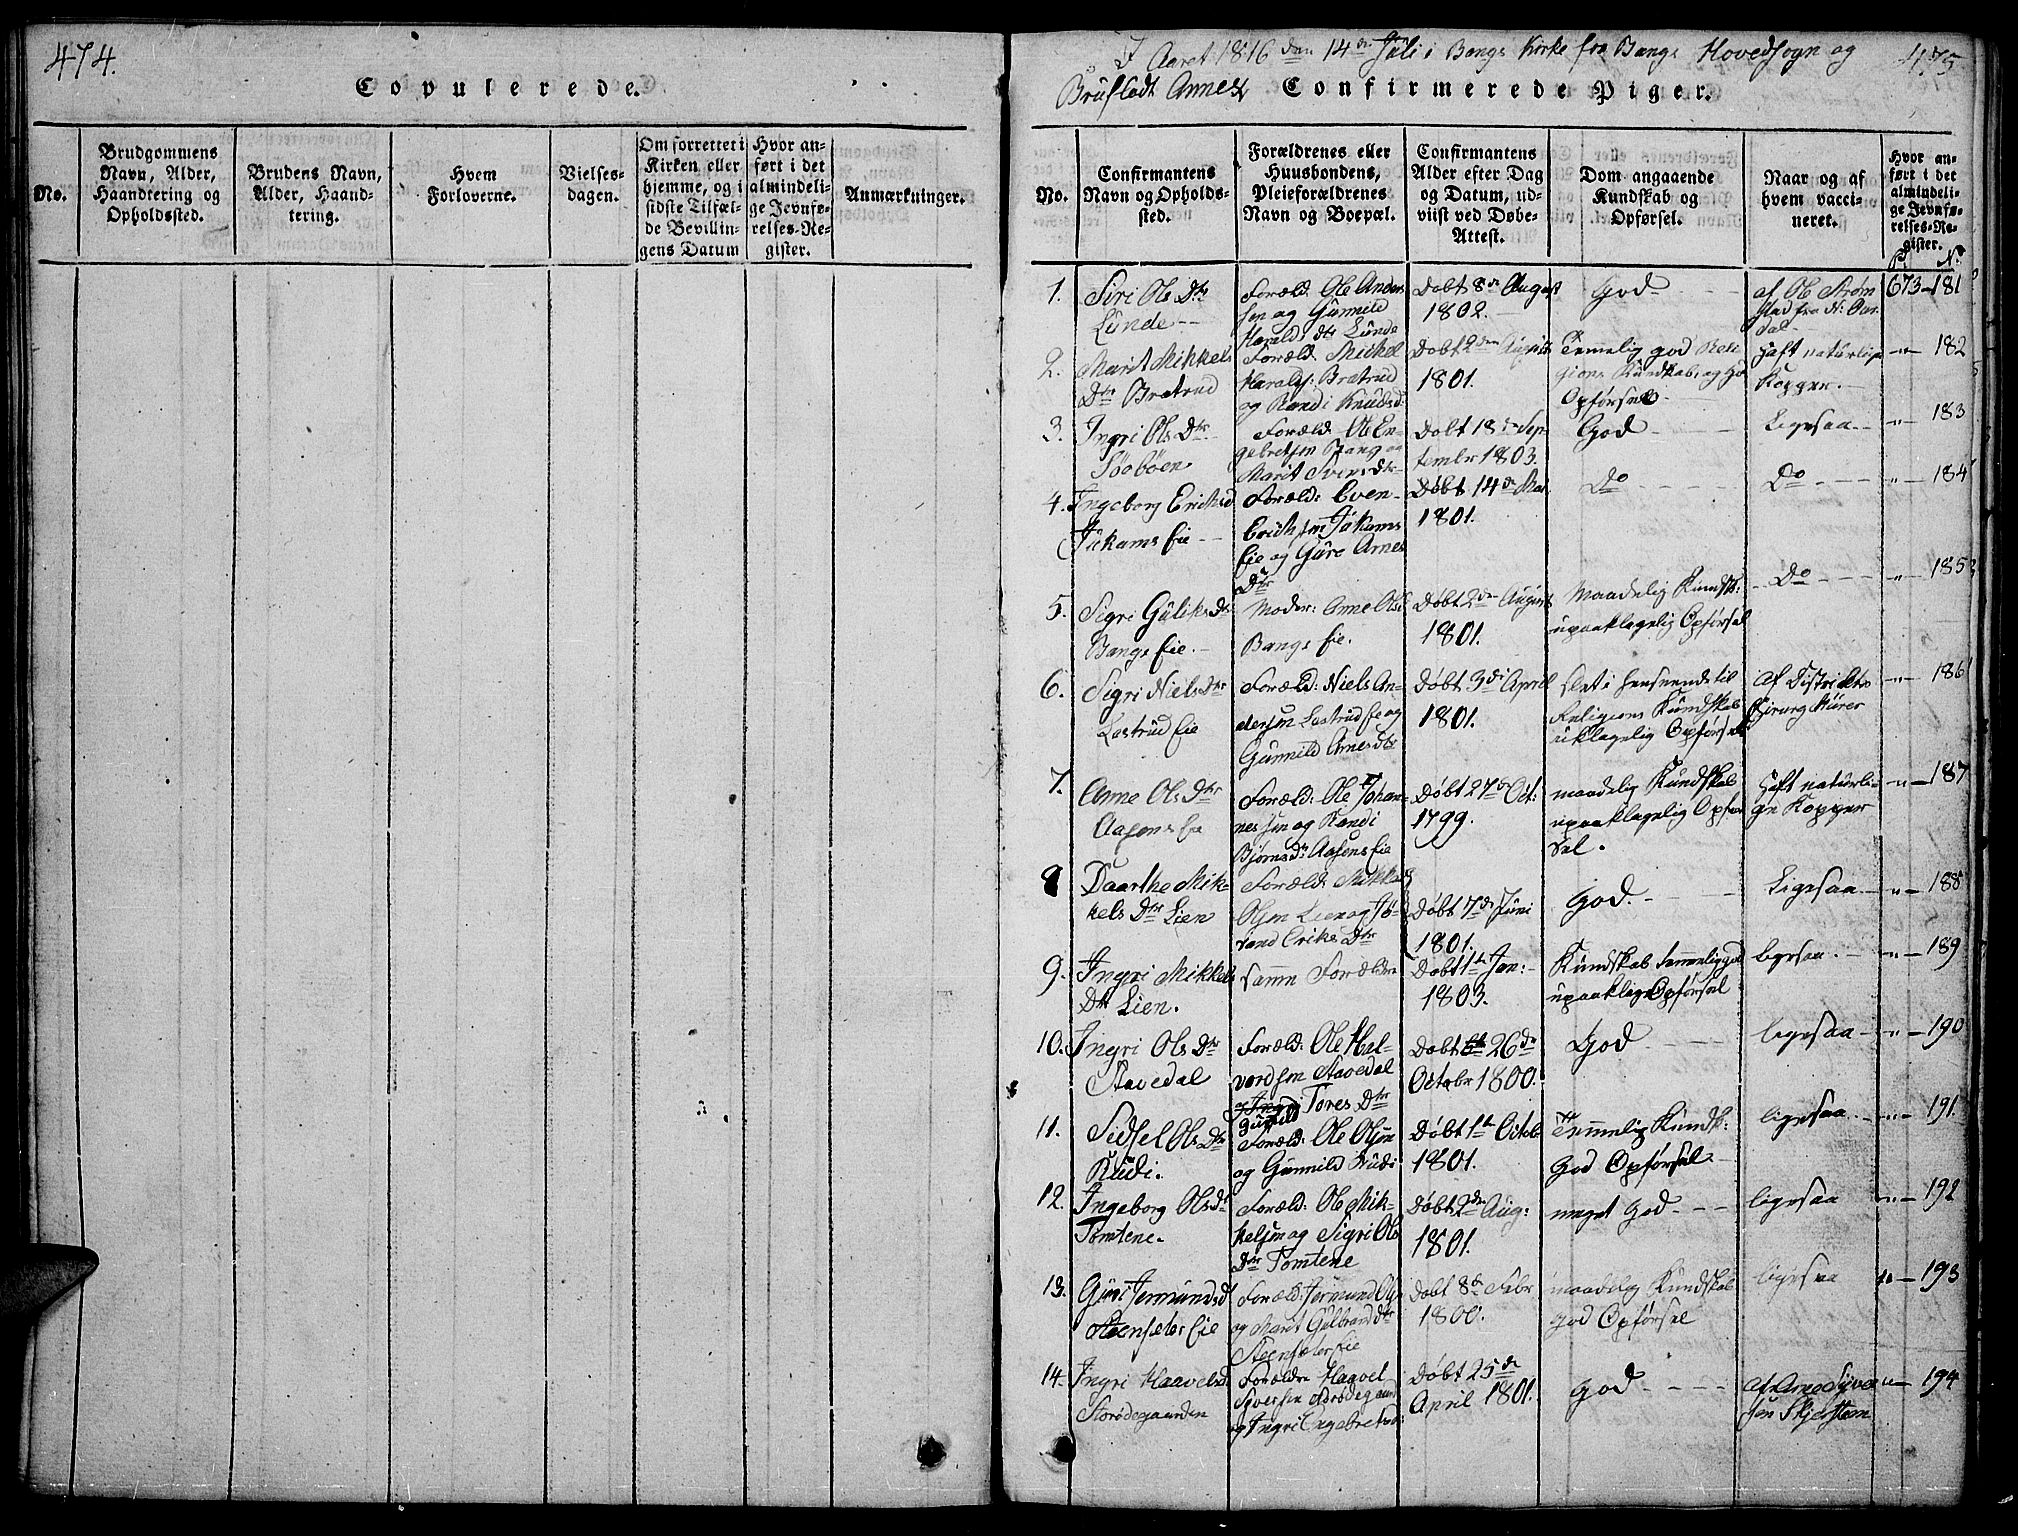 474.
Copulerede.
No.
Brudgommens
Navn, Alder,
Haandtering og
Opholdssted.
Brudens Navn,
Alder, Haand-
tering.
Hvem
Forloverne.
Vielses-
dagen.
Om forrettet i
Kirken eller
hjemme, og i
sidste Tilfæl-
de Bevillin-
gens Datum
Hvor an-
ført i det
almindeli-
ge Jevnfø-
relses-Re-
gister.
Anmærkninger.
I Aaret 1816 den 14de Juli i Bangs Kirke fra Bangs Hovedsogn og
475
Bruflodt Annex
Confirmerede Piger.
No.
Confirmantens
Navn og Opholds-
sted.
Forældrenes eller
Huusbondens,
Pleieforældrenes
Navn og Boepæl.
Confirmantens
Alder efter Dag
og Datum, ud-
viist ved Døbe-
Attest.
Dom angaaende
Kundskab og
Opførsel.
Naar og af
hvem vacci-
neret.
Hvor an-
ført i det
almindeli-
ge Jevnfø-
relses-Re-
gister.
P. N.
1. Siri Ols Dtr
Lunde
Foræld: Ole Anders
sen og Gunnild
Haralds dtr Lunde
Døbt 8de August
1802.
God
af Ole Strøm
stad fra N: Our
dal
673 - 181
2. Marit Mikkels
Dtr Brætrud
Foræld: Mickel
Haralds: Brætrud
og Randi Knudsd.
Døbt 2den August
1801.
Temmelig god Reli
gions Kundskab, og go
Opførsel
Haft naturlige
Kopper.
" 182
3. Ingri Ols Dtr
Søebøen
Foræld: Ole En-
gebretsen Bang og
Marit Ivers dtr
Døbt 18de Sep-
tembr 1803.
God
Ligesaa
" 183
4. Ingeborg Erichsd
Jukams Eie
Foræld: Even
Erichsen Jukams
Eie og Guro Arnes
Dtr
Døbt 14de Mai
1801.
Do
Do
" 184
5. Sigri Guliks dtr
Bangs Eie.
Moder: Anne Olsd
Bangs Eie.
Døbt 2den August
1801.
Maadelig Kundsk:
upaaklagelig Opførsel
Do
" 185
6. Sigri Niels Dtr
Lastrud Eie
Foræld: Niels An-
dersen Lastrud Eie og
Gunnild Arnesdtr
Døbt 3de April
1801.
slet i Henseende til
Religions Kundskab
uklagelig Opførsel
af Distrikts
Chirurg Kürer
" 186
7. Anne Ols Dtr
Aasens Eie
Foræld: Ole Johan-
nessen og Randi
Bjørnsdr Aasens Eie
Døbt 27de Oct:
1799.
maadelig Kundskab
upaaklagelig Opfør
sel.
Haft naturli
ge Kopper
" 187
8 Daarthe Mik-
kels Dtr Lien
Foræld: Mikkel
Olsen Lien og Jø-
rand Eriks Dtr
Døbt 7de Juni
1801.
God.
Ligesaa
" 188
9. Ingri Mikkels
Dtr Lien.
samme Forældre
Døbt 1ste Jan:
1803.
Kundskab temmelig god
upaaklage Opførsel
ligesaa.
" 189
10. Ingri Ols Dtr
Stavedal
Foræld: Ole Hal-
vordsen Stavedal
og Tores Dtr
Døbt 26de
Octobr 1800.
God
ligesaa
" 190
11. Sidsel Ols Dtr
Rudi.
Foræld: Ole Olsen
og Gunnild Rudi
Døbt 1ste Octob
1801.
Temmelig Kundsk:
God Opførsel
ligesaa
" 191.
12. Ingeborg Olsdt
Tomtene.
Foræld: Ole Mik-
kelsen og Sigri Ols
Dtr Tomtene
Døbt 2de Aug:
1801.
meget God
ligesaa
" 192
13. Guri Jermundsd
Steensæter Eie
Foræld: Jermund Ols
og Marit Gulbrands Dtr
Steensæter Eie
Døbt 8de Febr
1800.
maadelig Kundskab
god Opførsel
ligesaa
" 193
14. Ingri Haavelsd
Storødegaarden
Forældre Haavel
Syversen Storødegaard
og Ingri Engebretsd:
Døbt 25de
April 1801.
God
af Arne Syver
sen Skjersteen
" 194